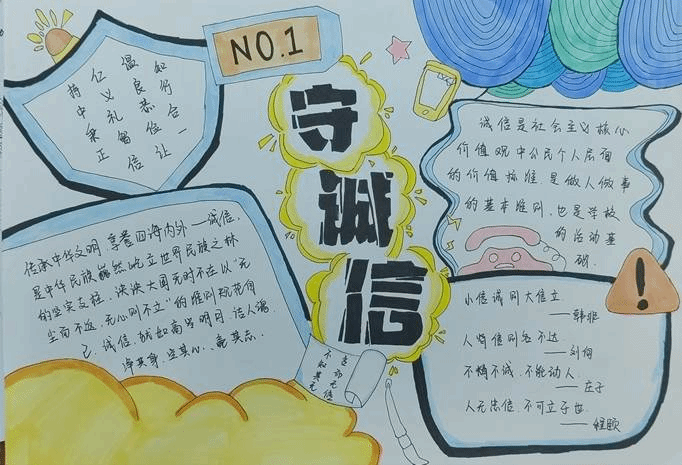 NO.1
守
诚
信
持中秉正
仁义礼智信
温良恭俭让
知行合一
诚信是社会主义核心
价值观中公民个人层面
的价值标准,是做人做事
的基本准则,也是学校
的活动基
础.
传承中华文明,享誉四海内外—诚信,
是中华民族巍然屹立世界民族之林
的坚实支柱.泱泱大国无时不在以“无
而不远,无心则不立”的准则规范自
己.诚信,就如明月,洁人
净其身,定其心,亮其志.
小信诚则大信立
——韩非
人背信则名不达
——刘向
不精不诚,不能动人.
——庄子
人无忠信,不可立于世
——程颐